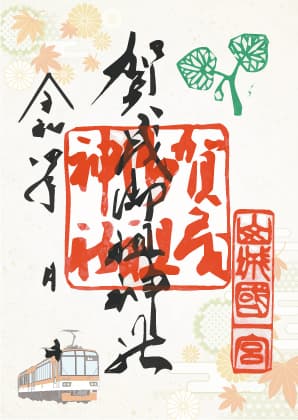 賀茂御祖神社
令和年月日
賀茂
御祖
神社
山城國
一宮